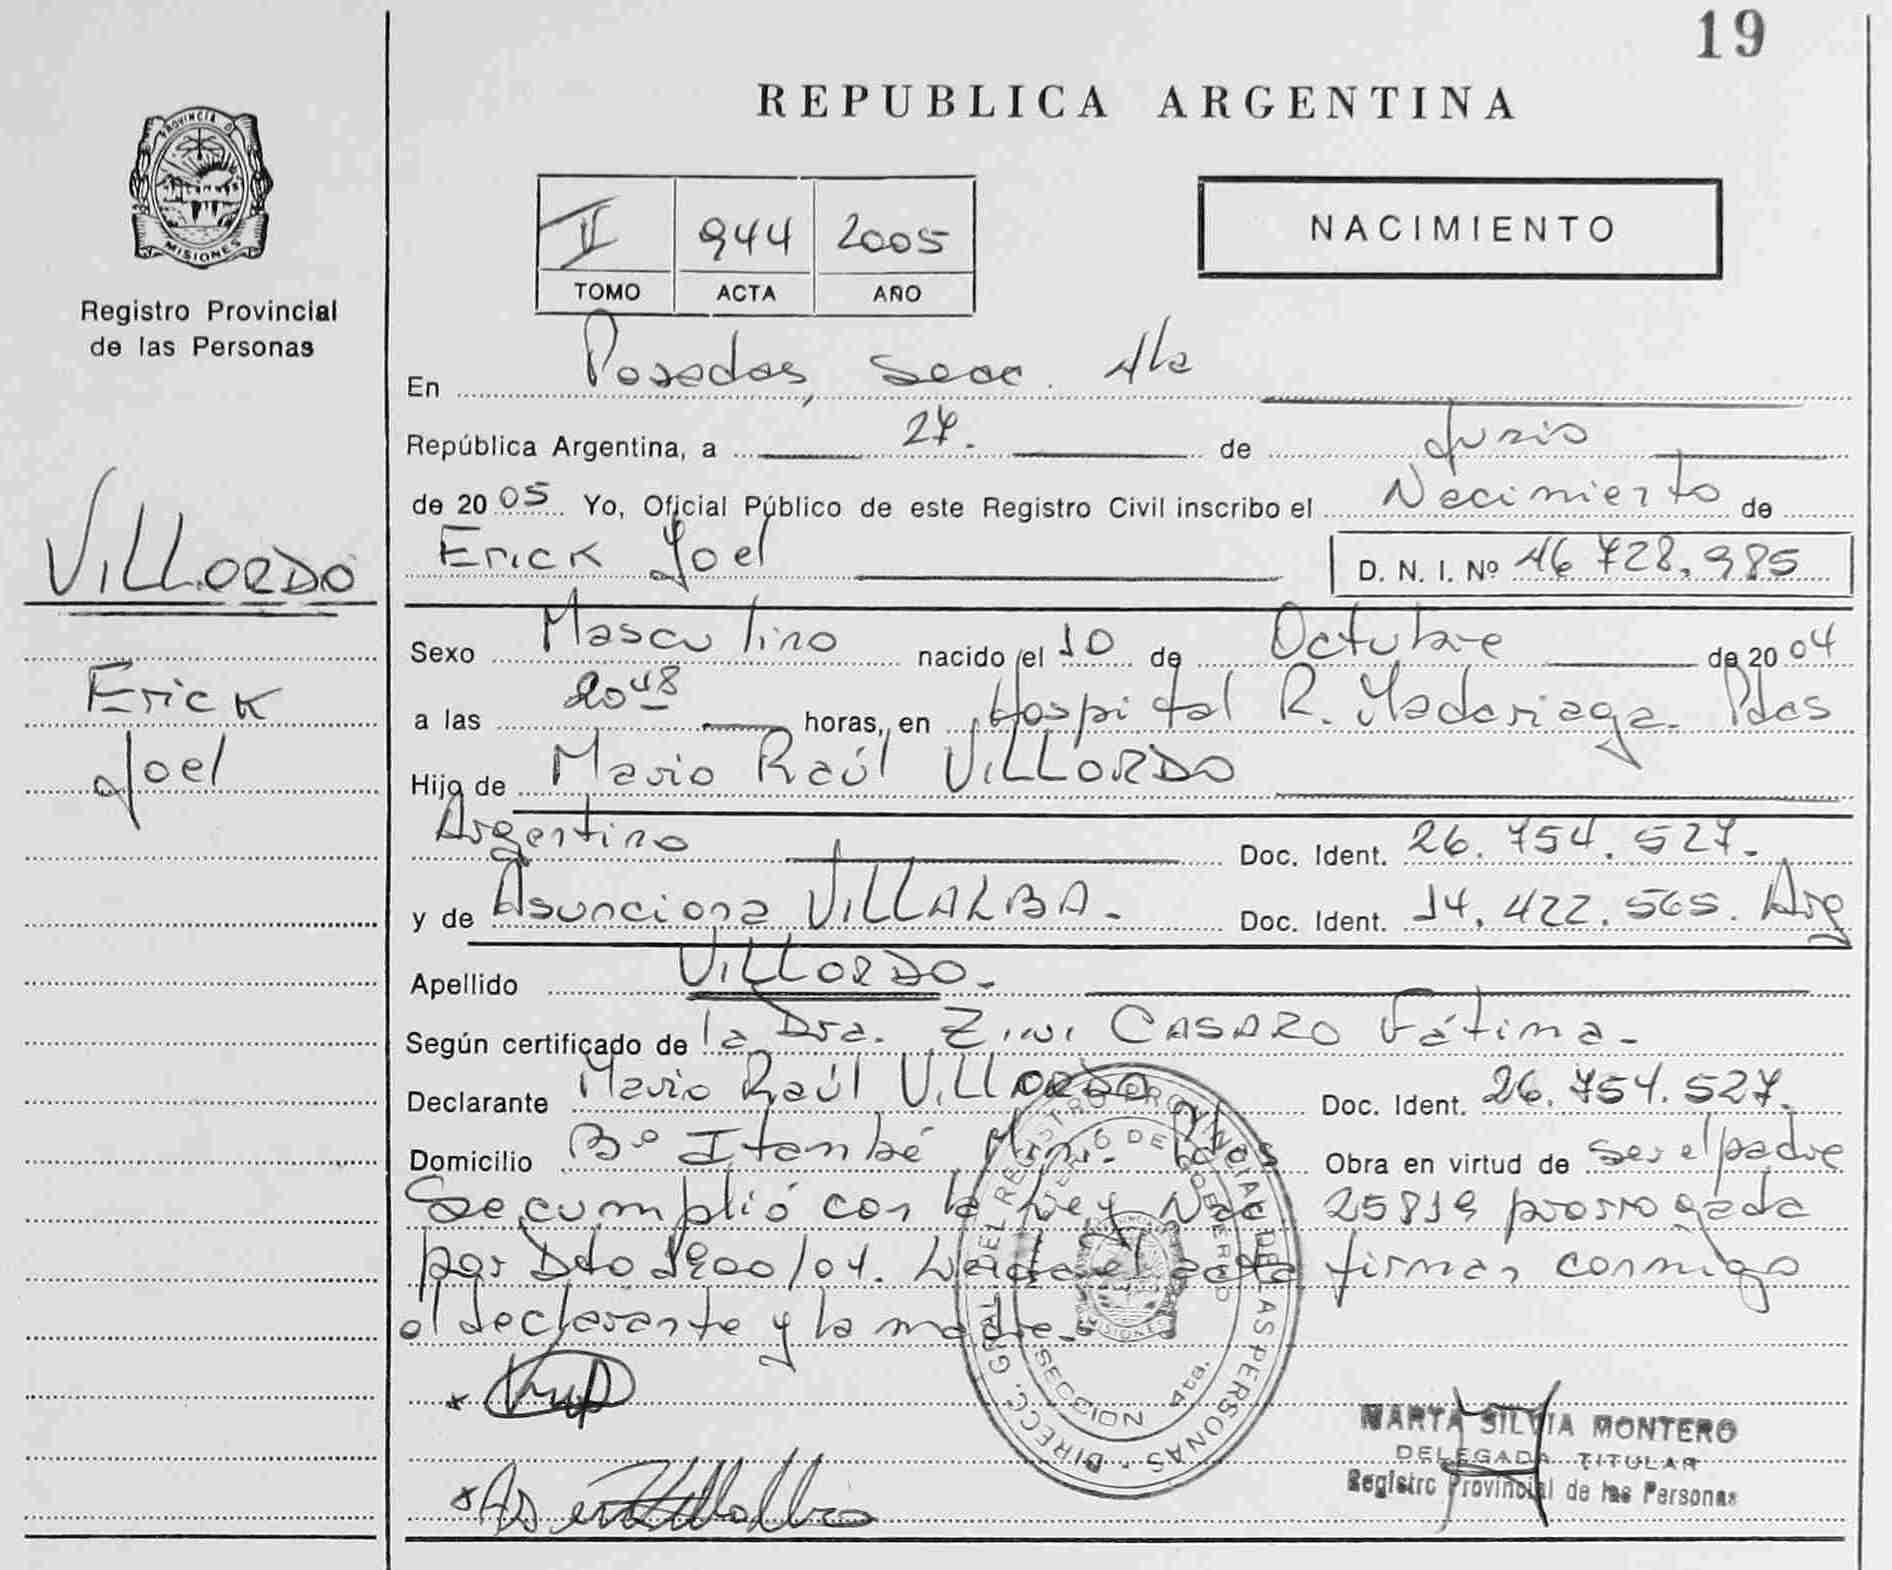 19
REPUBLICA ARGENTINA
PROVINCIA D
MISIONES
Registro Provincial
de las Personas
II 944 2005
TOMO ACTA AÑO
NACIMIENTO
En Posadas, Secc. 4ta
República Argentina, a 27. de Junio
de 2005 Yo, Oficial Público de este Registro Civil inscribo el Nacimiento de
Erick Joel D. N. I. Nº 46 728.985
VILLORDO
Erick
Joel
Sexo Masculino nacido el 10 de Octubre de 2004
a las 20 48 horas, en Hospital R. Madariaga. Pdas
Hijo de Mario Raúl VILLORDO
Argentino Doc. Ident. 26.754.527.
y de Asunciona VILLALBA. Doc. Ident. 14.422.565. Arg
Apellido VILLORDO.
Según certificado de la Dra. Zini CASARO Fátima.
Declarante Mario Raúl VILLORDO Doc. Ident. 26.754.527.
Domicilio Bº Itambé Mini. Pdas Obra en virtud de ser el padre
Se cumplió con la Ley Nac 25819 prorrogada
por Dto 1900/04. Leída el acta firman conmigo
el declarante y la madre.
DIRECC. GRAL. DEL REGISTRO PROVINCIAL DE LAS PERSONAS
DE GOBIERNO
MISIONES
SECCION 4ta.
MARTA SILVIA MONTERO
DELEGADA TITULAR
Registro Provincial de las Personas